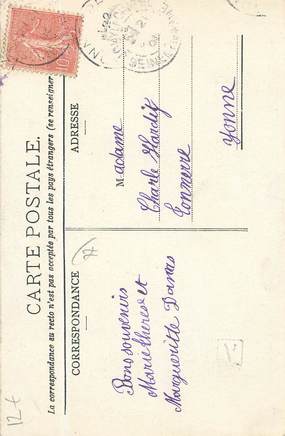 CARTE POSTALE.
La correspondance au recto n'est pas acceptée par tous les pays étrangers (se renseigner
CORRESPONDANCE
ADRESSE
Bons souvenirs
Marie therese et
Margueritte Damas
Madame
Charle Hardy
Tonnerre
Yonne
12+
10